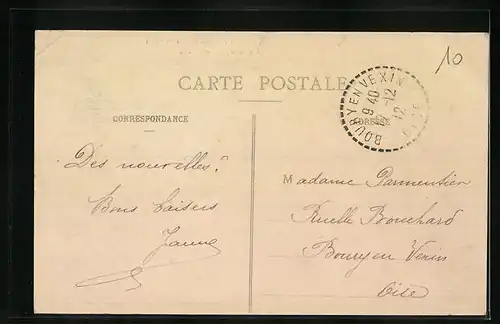 10
CARTE POSTALE
BOURY EN VEXIN
9 40
12
12
OISE
CORRESPONDANCE
ADRESSE
Des nouvelles ?
Bons baisers
Jeanne
Madame Parmentier
Ruelle Bouchard
Boury en Vexin
Oise